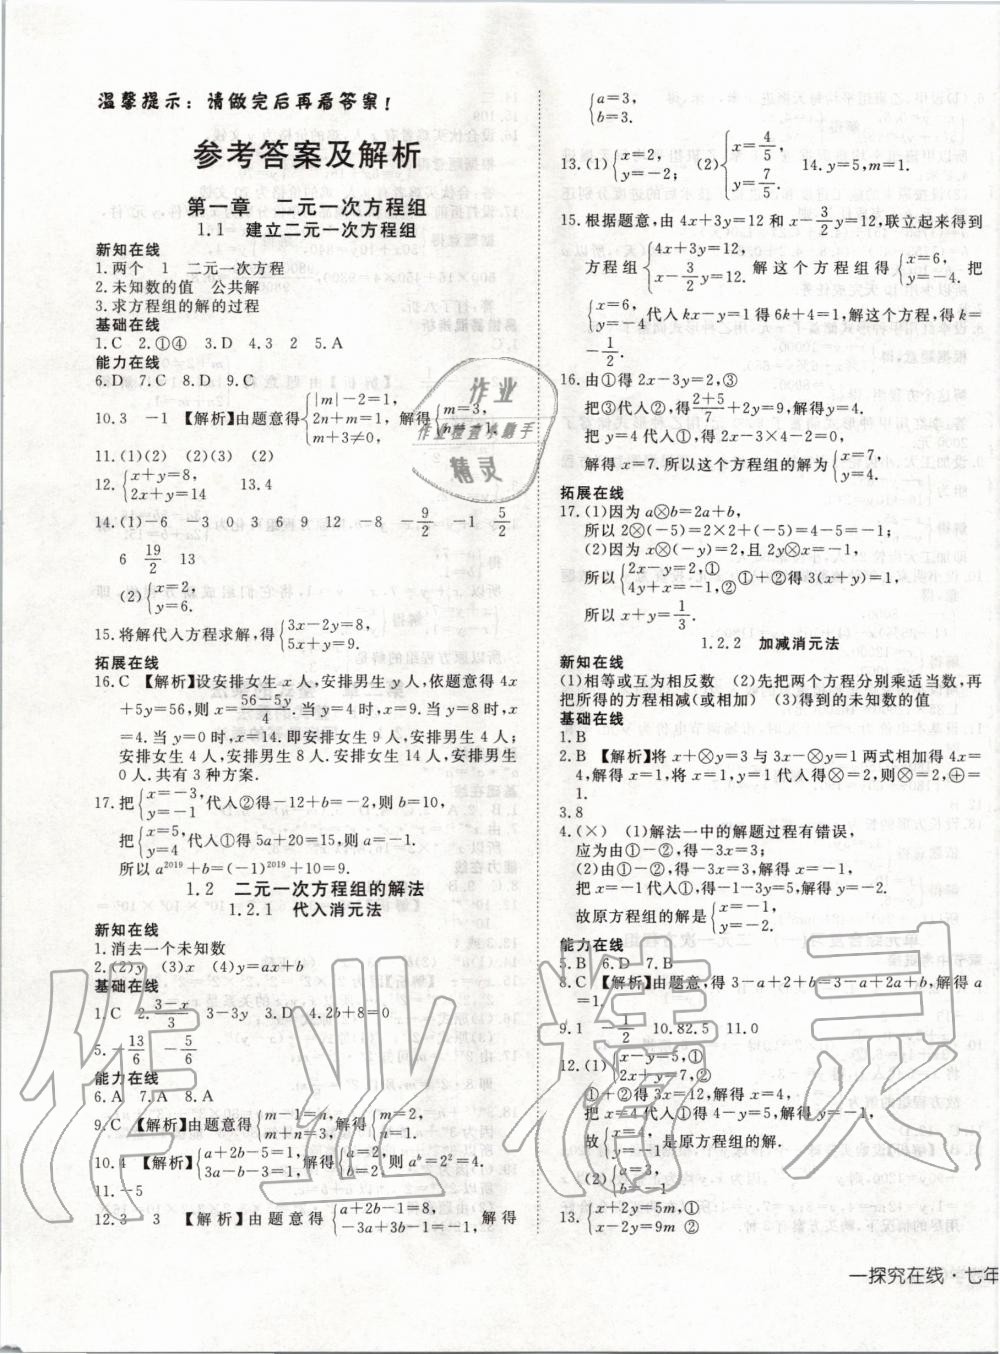 温馨提示：请做完后再看答案！
参考答案及解析
第一章　二元一次方程组
1.1　建立二元一次方程组
新知在线
1.两个　1　二元一次方程
2.未知数的值　公共解
3.求方程组的解的过程
基础在线
1.C　2.①④　3.D　4.3　2　5.A
能力在线
6.D　7.C　8.D　9.C
10.3　－1　【解析】由题意得{|m|－2＝1, 2n＋m＝1, m＋3≠0. 解得{m＝3, n＝－1.
11.(1)(2)　(2)(3)　(2)
12.{x＋y＝8, 2x＋y＝14　13.4
14.(1)－6　－3　0　3　6　9　12　－8　－9/2　－1　5/2
6　19/2　13
(2){x＝2, y＝6.
15.将解代入方程求解，得{3x－2y＝8, 5x＋y＝9.
拓展在线
16.C　【解析】设安排女生 x 人，安排男生 y 人，依题意得 4x
＋5y＝56，则 x＝(56－5y)/4. 当 y＝4 时，x＝9. 当 y＝8 时，x
＝4. 当 y＝0 时，x＝14. 即安排女生 9 人，安排男生 4 人；
安排女生 4 人，安排男生 8 人. 安排女生 14 人，安排男生
0 人. 共有 3 种方案.
17.把{x＝－3, y＝－1代入②得－12＋b＝－2，则 b＝10，
把{x＝5, y＝4代入①得 5a＋20＝15，则 a＝－1.
所以 a²⁰¹⁹＋b＝(－1)²⁰¹⁹＋10＝9.
1.2　二元一次方程组的解法
1.2.1　代入消元法
新知在线
1.消去一个未知数
2.(2)y　(3)x　(4)y＝ax＋b
基础在线
1.C　2.(3－x)/3　3－3y　3.D　4.2b＋8＝0
5.－13/6　－5/6
能力在线
6.A　7.A　8.A
9.C　【解析】由题意得{m－1＝n, m＋n＝3, 解得{m＝2, n＝1.
10.4　【解析】{a＋2b－5＝1, 3a－b－3＝1, 解得{a＝2, b＝2, 则 aᵇ＝2²＝4.
11.－5
12.3　3　【解析】由题意得{a＋2b－1＝8, －3a＋3b－1＝－1, 解得
{a＝3, b＝3.
13.(1){x＝2, y＝－2;　(2){x＝4/5, y＝7/5.　14.y＝5,m＝1.
15.根据题意，由 4x＋3y＝12 和 x－3/2y＝12，联立起来得到
方程组{4x＋3y＝12, x－3/2y＝12. 解这个方程组得{x＝6, y＝－4. 把
{x＝6, y＝－4代入 kx－y＝1 得 6k＋4＝1，解这个方程，得 k＝
－1/2.
16.由①得 2x－3y＝2，③
把③代入②，得(2＋5)/7＋2y＝9，解得 y＝4.
把 y＝4 代入①，得 2x－3×4－2＝0，
解得 x＝7. 所以这个方程组的解为{x＝7, y＝4.
拓展在线
17.(1)因为 a⊗b＝2a＋b，
所以 2⊗(－5)＝2×2＋(－5)＝4－5＝－1；
(2)因为 x⊗(－y)＝2，且 2y⊗x＝－1，
所以{2x－y＝2,① 4y＋x＝－1,② ①＋②得 3(x＋y)＝1.
所以 x＋y＝1/3.
1.2.2　加减消元法
新知在线
(1)相等或互为相反数　(2)先把两个方程分别乘适当数，再
把所得的方程相减(或相加)　(3)得到的未知数的值
基础在线
1.B
2.B　【解析】将 x＋⊗y＝3 与 3x－⊗y＝1 两式相加得 4x＝
4，解得 x＝1，将 x＝1，y＝1 代入方程可得⊗＝2，⊕＝
1.
3.8
4.(×)　(1)解法一中的解题过程有错误，
应为由①－②，得－3x＝3；
(2)由①－②，得－3x＝3，解得 x＝－1，
把 x＝－1 代入①，得－1－3y＝5，解得 y＝－2.
故原方程组的解是{x＝－1, y＝－2.
能力在线
5.B　6.D　7.B
8.C　【解析】由题意，得 3－a＋2＋b＝3－a＋2a＋b，解得 a
＝1.
9.1　－1/2　10.82.5　11.0
12.(1){x－y＝5,① 2x＋y＝7,②
①＋②得 3x＝12，解得 x＝4.
把 x＝4 代入①得 4－y＝5，解得 y＝－1，
故{x＝4, y＝－1是原方程组的解.
(2){a＝3, b＝－1
13.{x＋2y＝5m,① x－2y＝9m,②
一探究在线·七年
作业检查小助手
作业
精灵
作业精灵